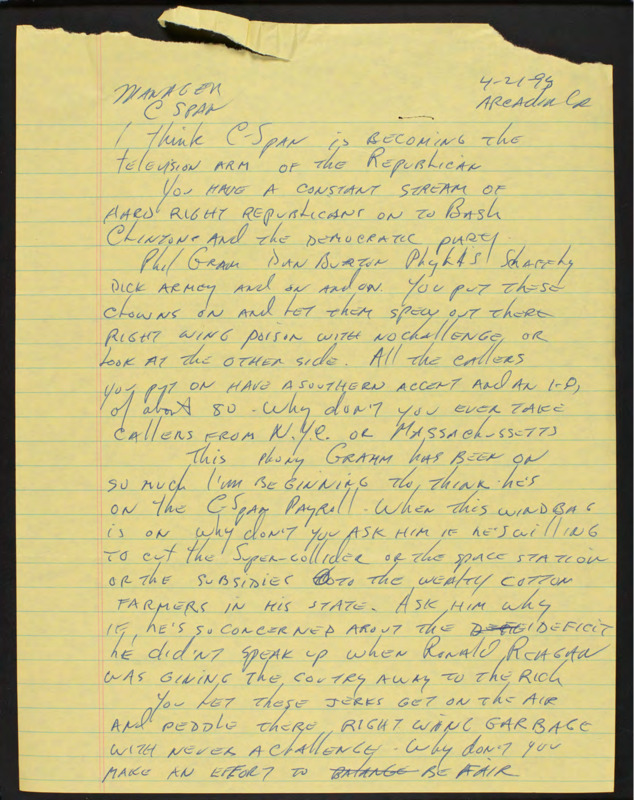 MANAGER 4-21-94
C SPAN ARCADIA CA
I think C-SPAN is BECOMING the
television ARM of the Republican
You HAVE A CONSTANT STREAM OF
HARD RIGHT REPUBLICANS ON to BASh
CLINTONS AND the DEMOCRATIC PARTY.
Phil GRAM DAN BURTON Phyllis Shaffly
DICK ARMEY AND ON AND ON. YOU PUT THESE
CLOWNS ON AND LET THEM SPEW OUT THERE
RIGHT WING POISON WITH NO CHALLENGE OR
LOOK AT the OTHER SIDE. All the CALLERS
you put ON HAVE A SOUTHERN ACCENT AND AN I-Q,
of about 80. Why DON'T you EVER TAKE
CALLERS FROM N.Y.C. OR MASSACHUSSETTS
This phony GRAMM HAS BEEN ON
SO MUCH I'M BEGINNING to think he's
ON the C-Span PAYROLL. WHEN this WINDBAG
IS ON why DON'T you ASK HIM IF HE'S WILLING
TO CUT the SUPER-COLLIDER OR the SPACE STATION
OR the SUBSIDIES to the WEALTHY COTTON
FARMERS IN HIS STATE. ASK HIM why
IF, he's SO CONCERNED ABOUT the DEFICIT
he DIDN'T SPEAK UP WHEN RONALD REAGAN
WAS GINING the COUTRY AWAY TO the RICH
You LET THESE JERKS GET ON the AIR
AND PEDDLE THERE RIGHT WING GARBAGE
WITH NEVER A CHALLENGE. Why DON'T you
MAKE AN EFFORT TO BALANGE BE FAIR